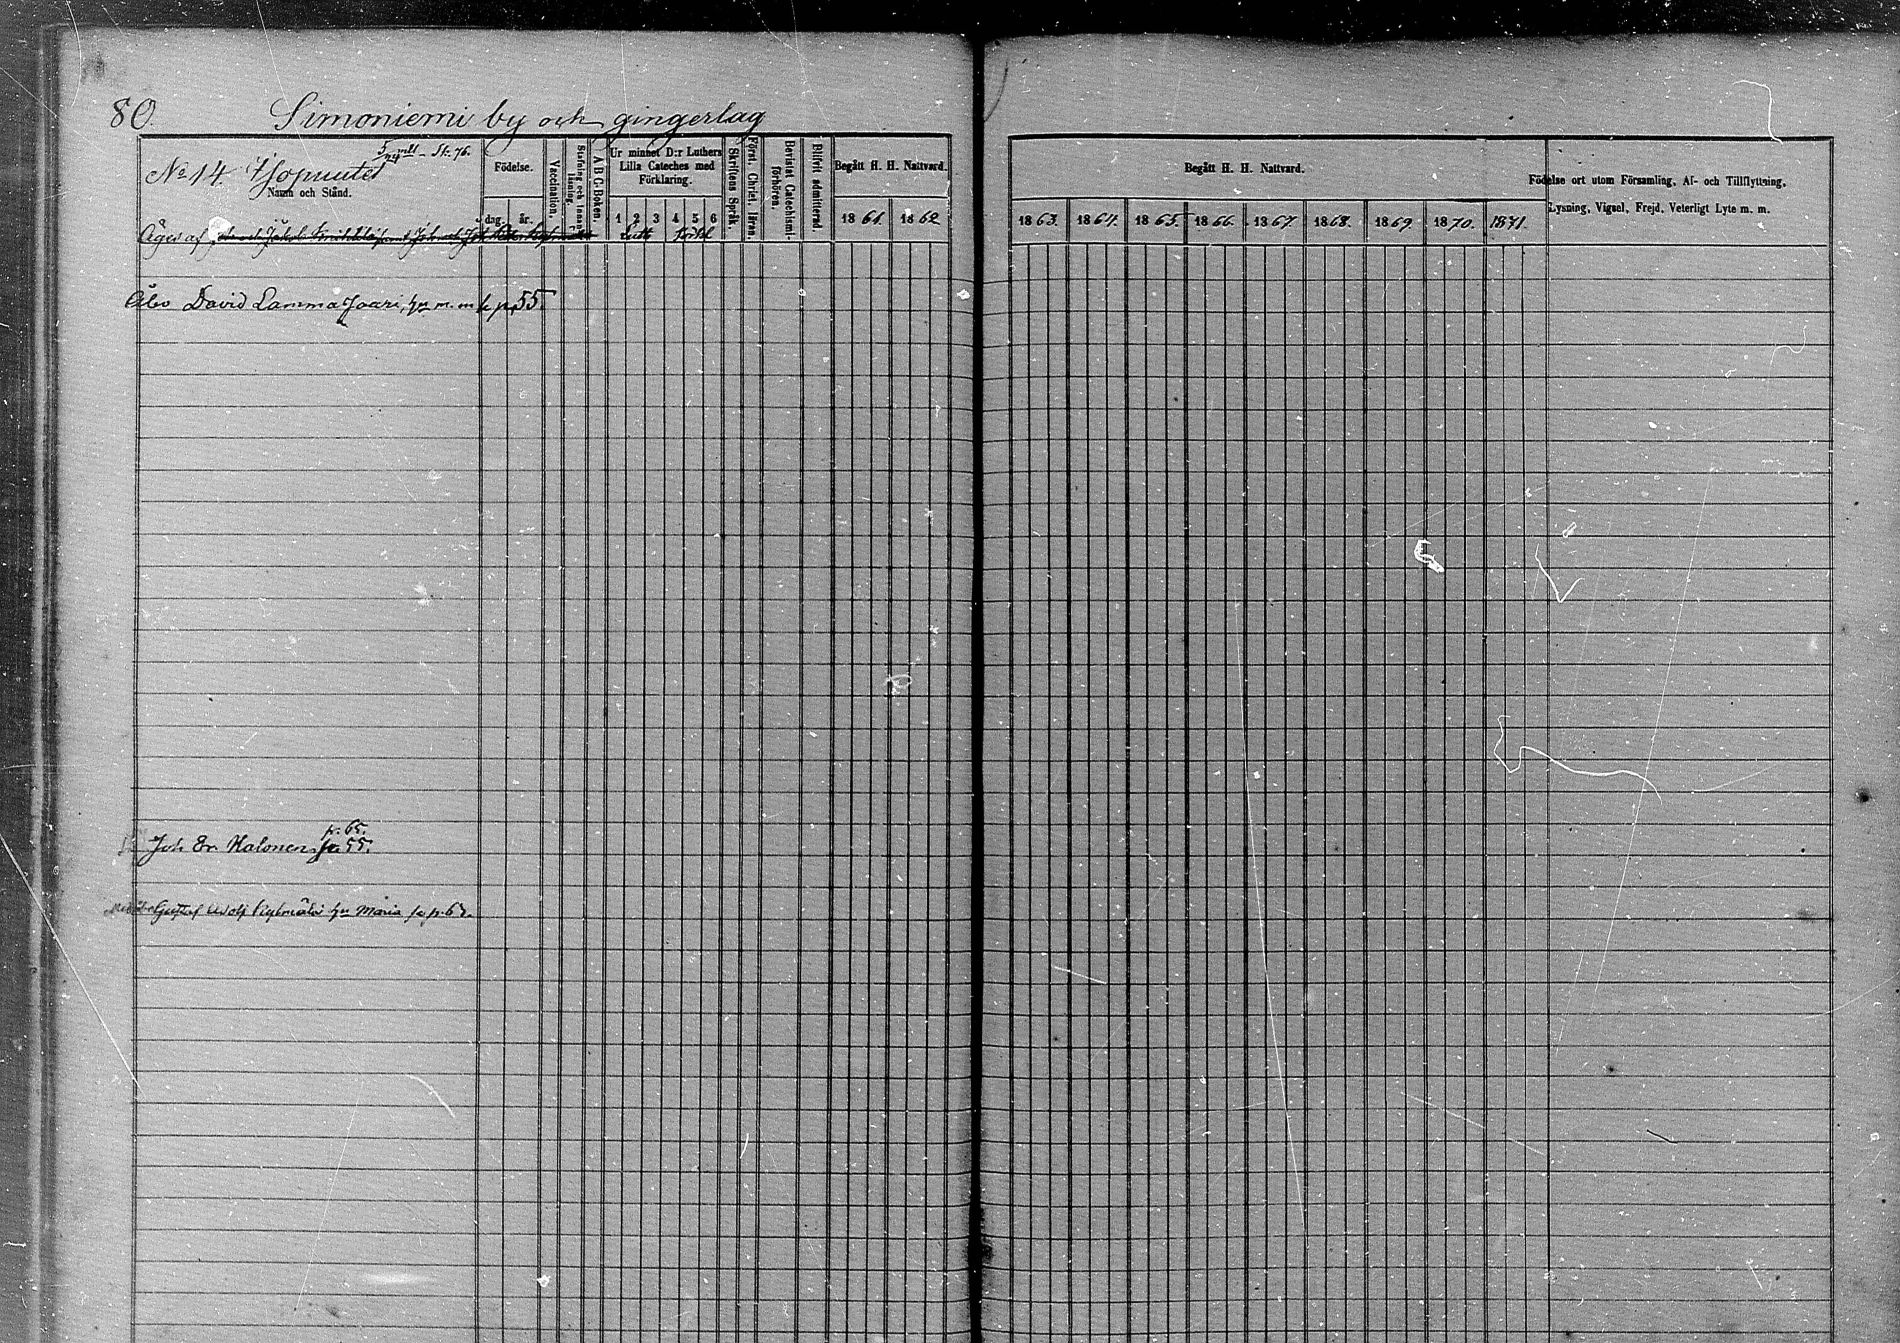 80. Simoniemi by och gingerlag
No 14.
Namn och Stånd.
Födelse.
dag. år.
Vaccination.
Stafning och Innanläsning.
A B C-Boken.
Ur minnet D:r Luthers Lilla Cateches med Förklaring.
1 2 3 4 5 6
Skriftens Språk.
Först. Christ. läran.
Bevistat Catechismi-förhören.
Blifvit admitterad.
Begått H. H. Nattvard.
1861. 1862
Begått H. H. Nattvard.
1863. 1864. 1865. 1866. 1867. 1868. 1869. 1870. 1871.
Födelse ort utom Församling, Af- och Tillflyttning,
Lysning, Vigsel, Frejd, Veterligt Lyte m. m.
Äges af
Åbo David Lamma Jaari, hu m. m. se p. 55.
p. 65.
Joh Er Halonen se 55.
Gustaf Adolf hu Maria se p.